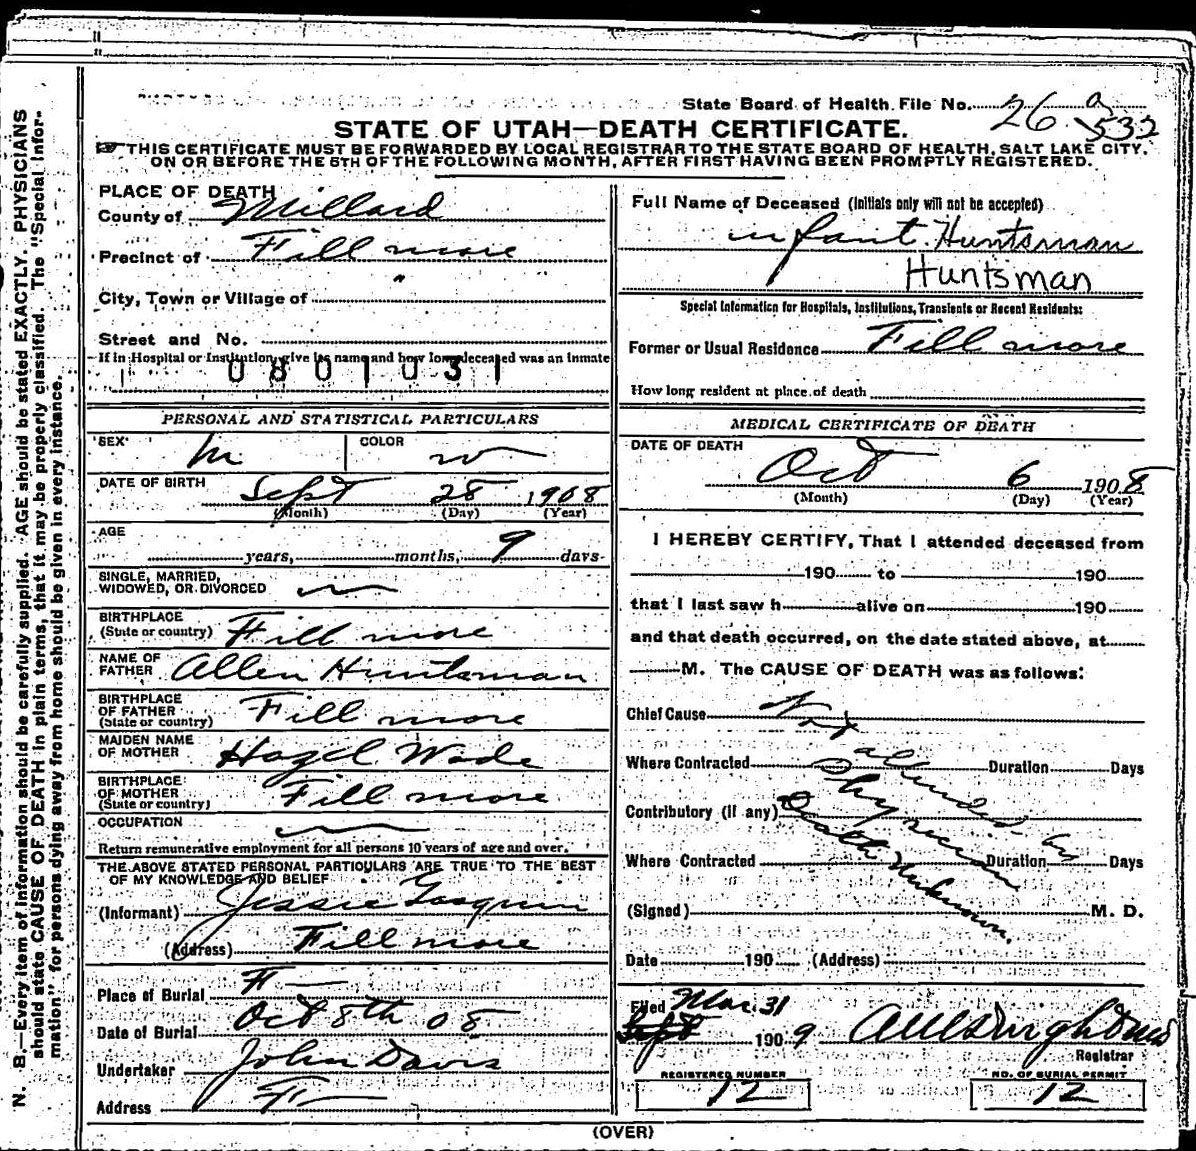 State Board of Health File No. 26 a 532
STATE OF UTAH—DEATH CERTIFICATE.
THIS CERTIFICATE MUST BE FORWARDED BY LOCAL REGISTRAR TO THE STATE BOARD OF HEALTH, SALT LAKE CITY,
ON OR BEFORE THE 5TH OF THE FOLLOWING MONTH, AFTER FIRST HAVING BEEN PROMPTLY REGISTERED.
N. B.—Every item of information should be carefully supplied. AGE should be stated EXACTLY. PHYSICIANS
should state CAUSE OF DEATH in plain terms, that it may be properly classified. The "Special Infor-
mation" for persons dying away from home should be given in every instance.
PLACE OF DEATH
County of Millard
Precinct of Fillmore
City, Town or Village of "
Street and No.
If in Hospital or Institution, give its name and how long deceased was an inmate
0801031
PERSONAL AND STATISTICAL PARTICULARS
SEX M COLOR W
DATE OF BIRTH Sept 28 1908
(Month) (Day) (Year)
AGE years, months, 9 days
SINGLE, MARRIED,
WIDOWED, OR DIVORCED
BIRTHPLACE
(State or country) Fillmore
NAME OF
FATHER Allen Huntsman
BIRTHPLACE
OF FATHER
(State or country) Fillmore
MAIDEN NAME
OF MOTHER Hazel Wade
BIRTHPLACE
OF MOTHER
(State or country) Fillmore
OCCUPATION
Return remunerative employment for all persons 10 years of age and over.
THE ABOVE STATED PERSONAL PARTICULARS ARE TRUE TO THE BEST
OF MY KNOWLEDGE AND BELIEF
(Informant) Jessie
(Address) Fillmore
Place of Burial F
Date of Burial Oct 8th 08
Undertaker John Davis
Address F
Full Name of Deceased (Initials only will not be accepted)
infant Huntsman
Huntsman
Special Information for Hospitals, Institutions, Transients or Recent Residents:
Former or Usual Residence Fillmore
How long resident at place of death
MEDICAL CERTIFICATE OF DEATH
DATE OF DEATH
Oct 6 1908
(Month) (Day) (Year)
I HEREBY CERTIFY, That I attended deceased from
190 to 190
that I last saw h alive on 190
and that death occurred, on the date stated above, at
M. The CAUSE OF DEATH was as follows:
Chief Cause Not
attended by
Where Contracted Duration Days
Physician
Contributory (if any)
Death Unknown.
Where Contracted Duration Days
(Signed) M. D.
Date 190 (Address)
Filed Mar. 31
Sept 1909
Registrar
REGISTERED NUMBER
12
NO. OF BURIAL PERMIT
12
(OVER)